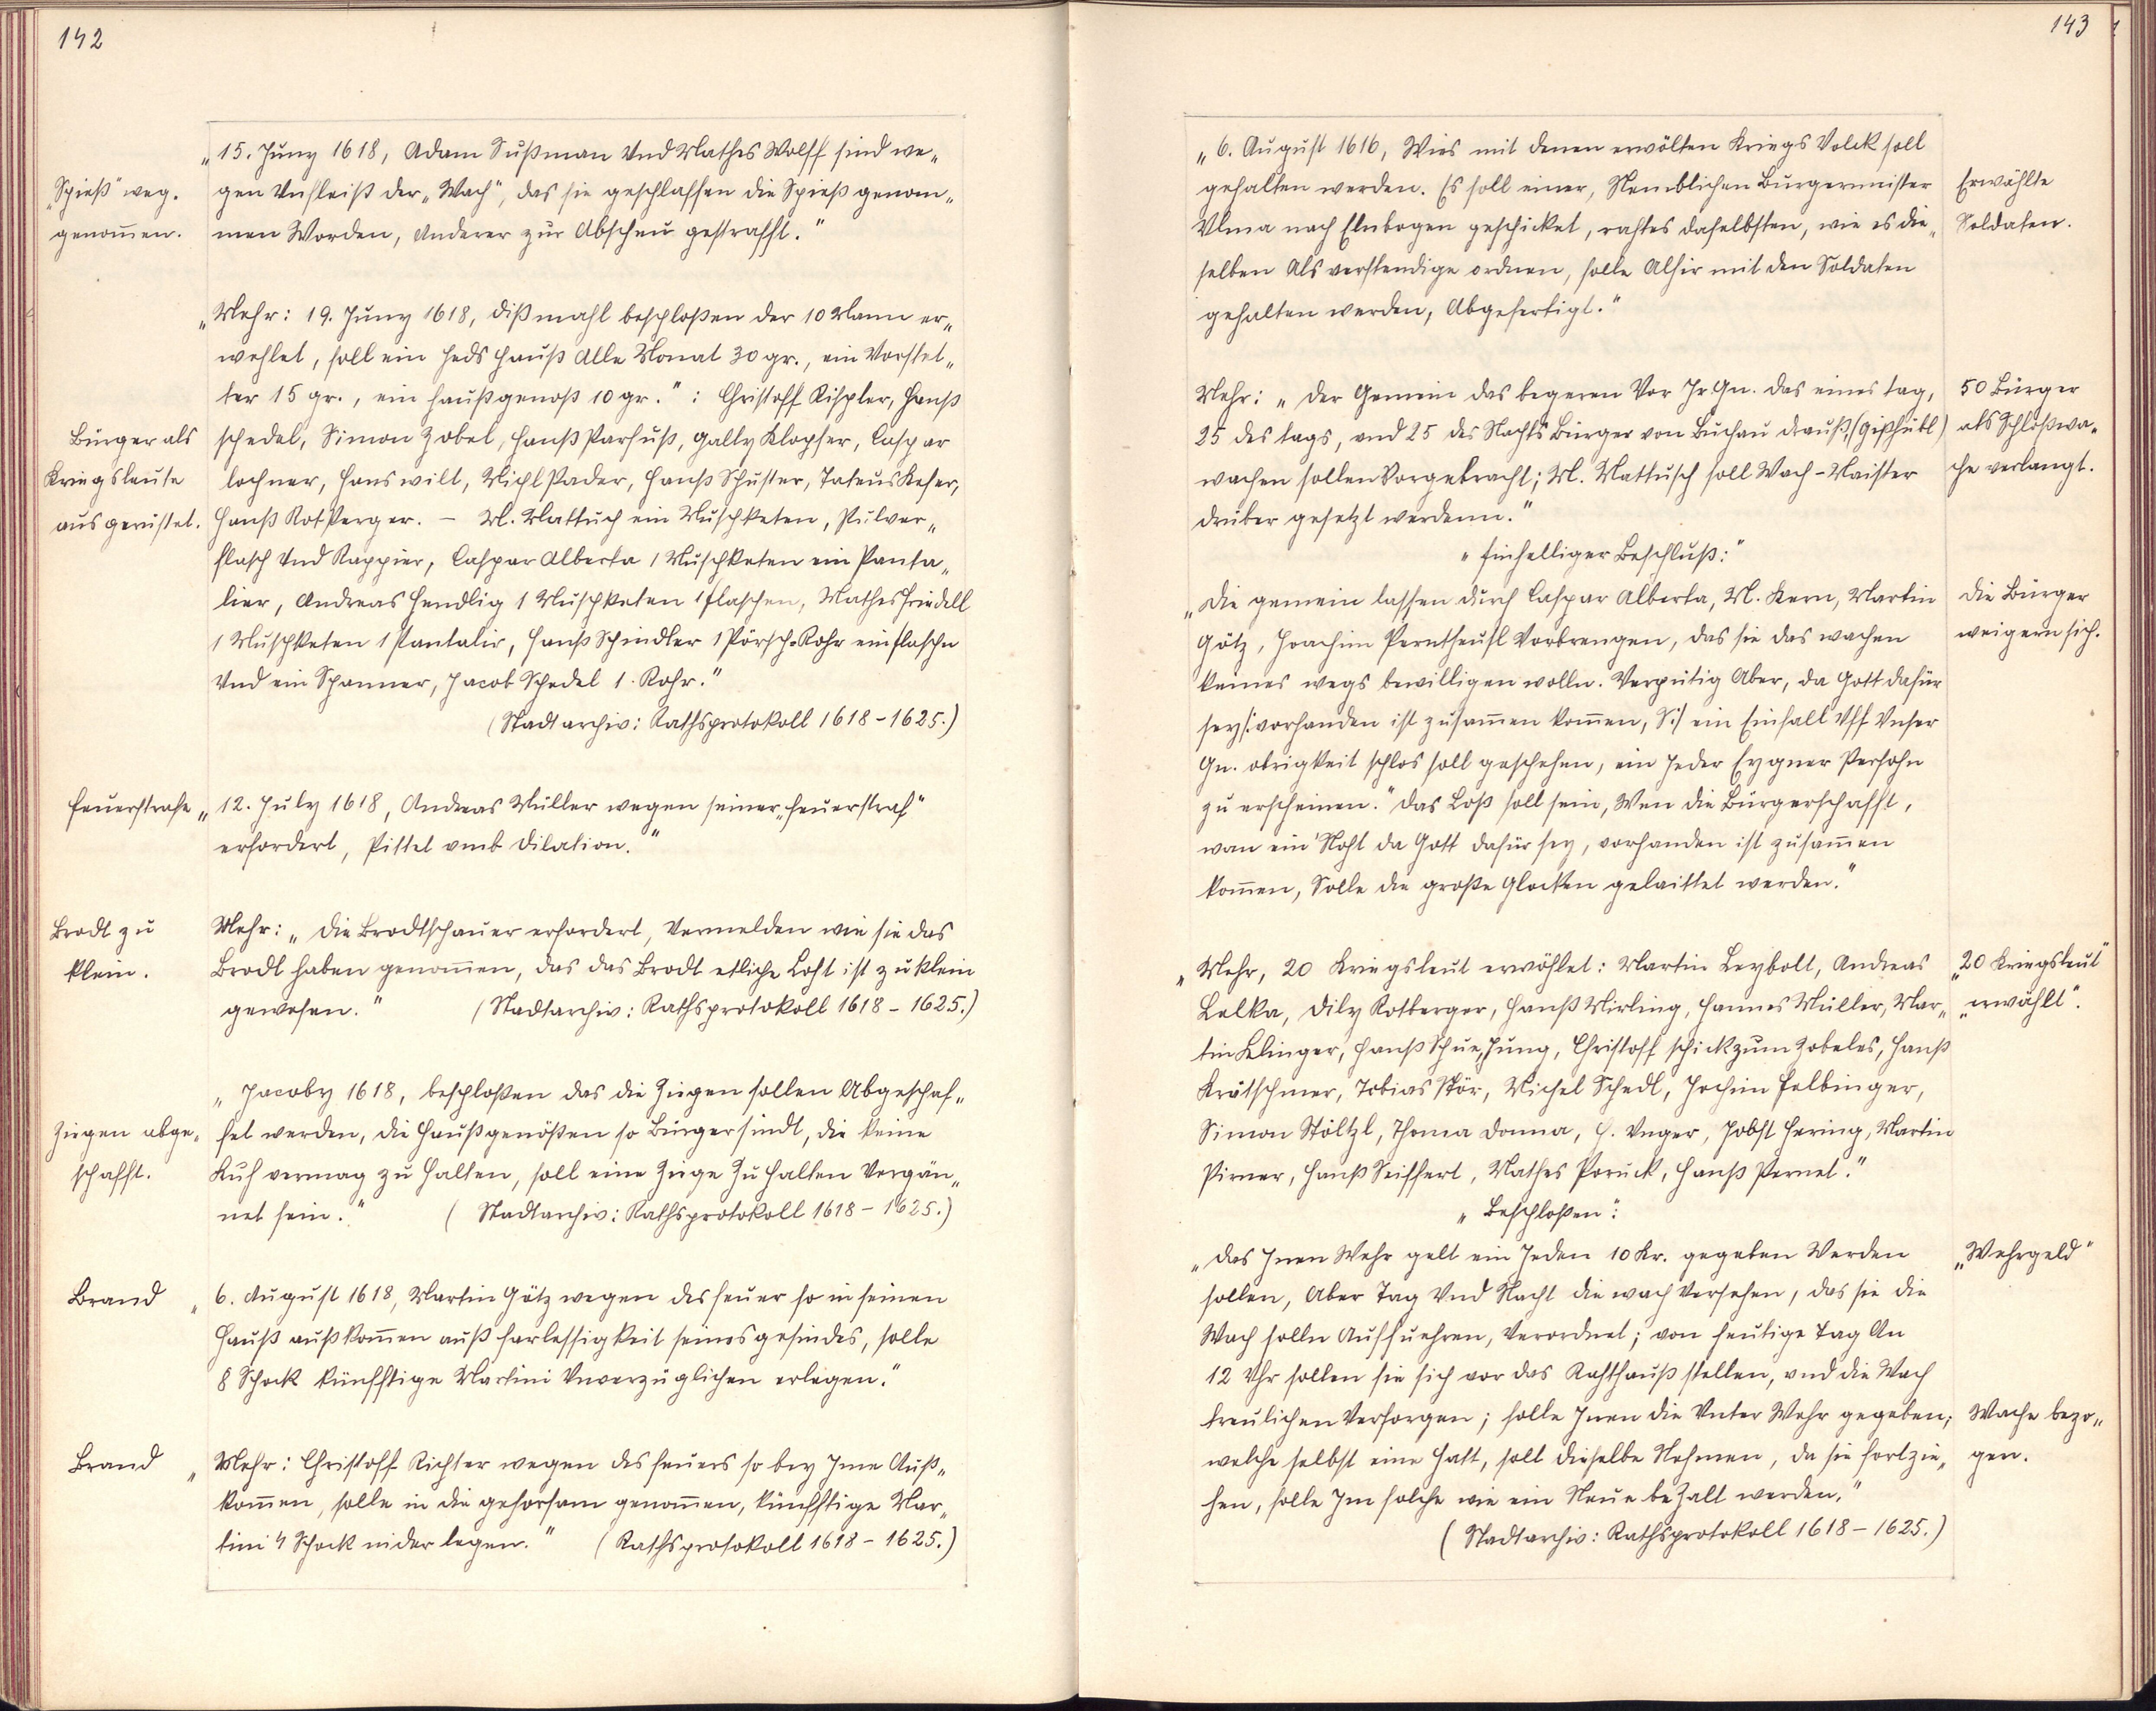 142
„15. Juny 1618, Adam Sußman Vnd Mathes Wolff sind we„
„Spieß“ weg.
gen Vnfleiß der „Wach“, das sie geschlaffen die Spieß genom„
genom̄en.
men Worden, Anderer zur Abscheu gestrafft.“
„Mehr: 19. Juny 1618, dißmahl beschloßen der 10 Mann er„
wehlet, soll ein Jeds Hauß Alle Monat 30 gr., ein Vorstet„
ter 15 gr., ein Haußgenoß 10 gr.“: Christoff Rispler, Hanß
Bürger als
schedel, Simon Zobel, Hanß Parfuß, Gally Klopfer, Caspar
Kriegsleute
lochner, Hans wilt, Michl Pader, Hanß Schuster, Tateus Keser,
ausgerüstet.
Hanß Rotperger. – M. Mattuch ein Muschketen, Pulver„
flasch Vnd Rappier, Caspar Alberta 1 Muschketen ein Panta„
lier, Andreas Hendlig 1 Muschketen 1 flaschen, Mathes Friedell
1 Muschketen 1 Pantalir, Hanß Schindler 1 Pörsch-Rohr ein flaschn
Vnd ein Spanner, Jacob Schedel 1. Rohr.“
(Stadtarchiv: Rathsprotokoll 1618-1625.)
Feuerstrafe
„12. July 1618, Andreas Müller wegen seiner „Feuerstraf“
erfordert, Pittet vmb Dilation.“
Brodt zu
Mehr: „Die Brodtschauer erfordert, Vermelden wie sie das
klein.
Brodt haben genom̄en, das das Brodt etliche Loht ist zu klein
gewesen.“ (Stadtarchiv: Rathsprotokoll 1618-1625.)
„Jacoby 1618, beschloßen das die Ziegen sollen Abgeschaf„
Ziegen abge„
fet werden, die Haußgenößen so Bürger sindt, die keine
schafft.
Kuh vermag zu halten, soll eine Ziege Zu halten Vergün„
net sein.“ (Stadtarchiv: Rathsprotokoll 1618-1625.)
Brand
„6. August 1618, Martin Götz wegen des Feuer so in seinen
Hauß außkom̄en auß farlessigkeit seines gesindes, solle
8 Schock künfftige Martini Vnverzüglichen erlegen.“
Brand
„Mehr: Christoff Richter wegen des Feuers so bey Jme Auß„
kom̄en, solle in die gehorsam genom̄en, künfftige Mar„
tini 4 Schock nider legen.“ (Rathsprotokoll 1618-1625.)
143
„6. August 1616, Wies mit denen erwölten Kriegs Volck soll
gehalten werden. Es soll einer, Nemblichen Burgermeister
Erwählte
Vlma nach Elnbogen geschicket, rahtes daselbsten, wie es die„
Soldaten.
selben Als verstendige ordnen, solle Alhir mit den Soldaten
gehalten werden, Abgefertigt.“
Mehr: „Der Gemein das begeren Vor Jr. Gn. das eines tag,
50 Bürger
25 des tags, vnd 25 des Nachts Bürger von Buchau drauß, (Gißhübl)
als Schloßwa„
wachen sollen Vorgebracht; M. Mattusch soll Wach-Maister
che verlangt.
druber gesetzt werdenn.“
„Einhelliger Beschluß:“
„Die gemein lassen durch Caspar Alberta, M. Kern, Martin
Die Bürger
Götz, Joachim Perntheusl Vorbrengen, das sie das wachen
weigern sich.
keines wegs bewilligen wolln. Vergütig Aber, da Gott dafür
sey /: vorhanden ist zusam̄en kom̄en, S:/ ein Einfall Vff Vnser
Gn. obrigkeit schlos soll geschehen, ein Jeder Eygner Persohn
zu erscheinen.“ Das Loß soll sein, Wen die Bürgerschafft,
wan ein Noht da Gott dafür sey, vorhanden ist zusam̄en
kom̄en, Solle die große Glocken gelaittet werden.“
„Mehr, 20 Kriegsleut erwöhlet: Martin Leybolt, Andreas
„20 Kriegsleut“
Lelka, Dily Rotberger, Hanß Mirling, Hannes Müller, Mar„
„erwählt“.
tin Klinger, Hanß Schue, Jung, Christoff schick zum Zobeles, Hanß
Krätschmer, Tobias Stör, Michel Schedl, Jochim Felbinger,
Simon Stöltzl, Thoma Donna, H. Vnger, Jobst Hering, Martin
Pirner, Hanß Seiffert, Mathes Poruck, Hanß Pernet.“
„Beschloßen“:
„Das Jnen Wehr gelt ein Jeden 10 Kr. gegeben Werden
„Wehrgeld“
sollen, Aber Tag Vnd Nacht die wach Versehen, das sie die
Wach solln Auffuehren, Verordnet; von heutige Tag An
12 Vhr sollen sie sich vor das Rahthauß stellen, vnd die Wach
treulichen Versorgen; solle Jnen die Vnter Wehr gegeben,
Wache bezo„
welche selbst eine Hatt, soll dieselbe Nehmen, da sie fortzie„
gen.
hen, solle Jm solche wie ein Neue beZalt werden.“
(Stadtarchiv: Rathsprotokoll 1618-1625.)